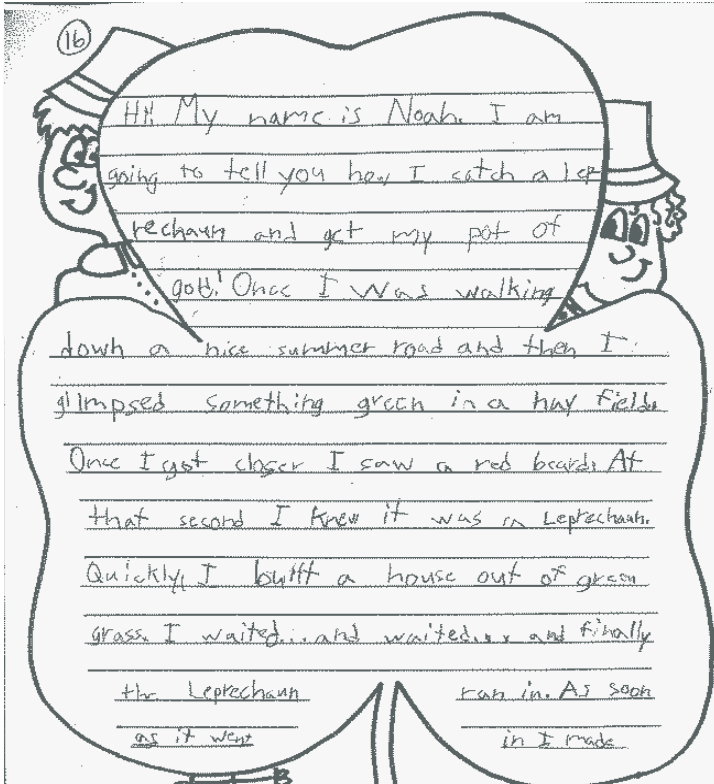 16
Hi! My name is Noah. I am
going to tell you how I catch a lep
rechaun and get my pot of
gold! Once I was walking
down a nice summer road and then I
glimpsed something green in a hay field.
Once I got closer I saw a red beard. At
that second I knew it was in Leprechaun.
Quickly, I built a house out of green
grass. I waited...and waited... and finally
the Leprechaun ran in. As soon
as it went in I made